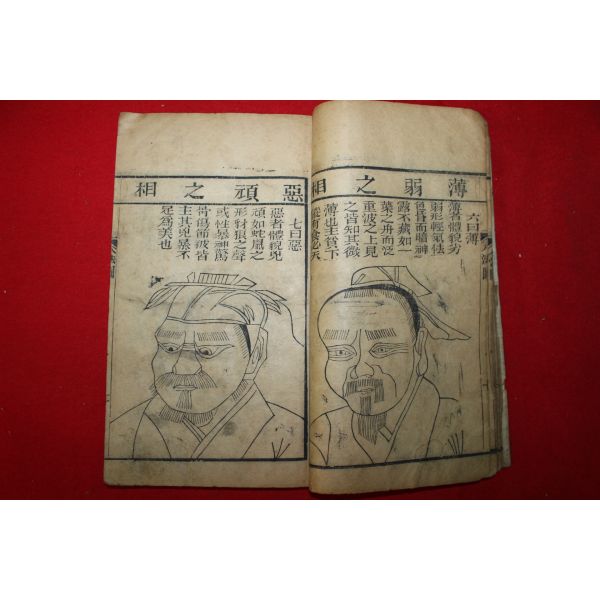 薄弱之相
六曰薄
薄者體貌劣
弱形輕氣怯
色昏而暗神
露不藏如一
葉之舟而泛
重波之上見
之皆知其微
薄也主貧下
有食必夭
惡頑之相
七曰惡
惡者體貌兇
頑如蛇鼠之
形豺狼之聲
或性暴神驚
骨傷節破皆
主其兇暴不
足為美也